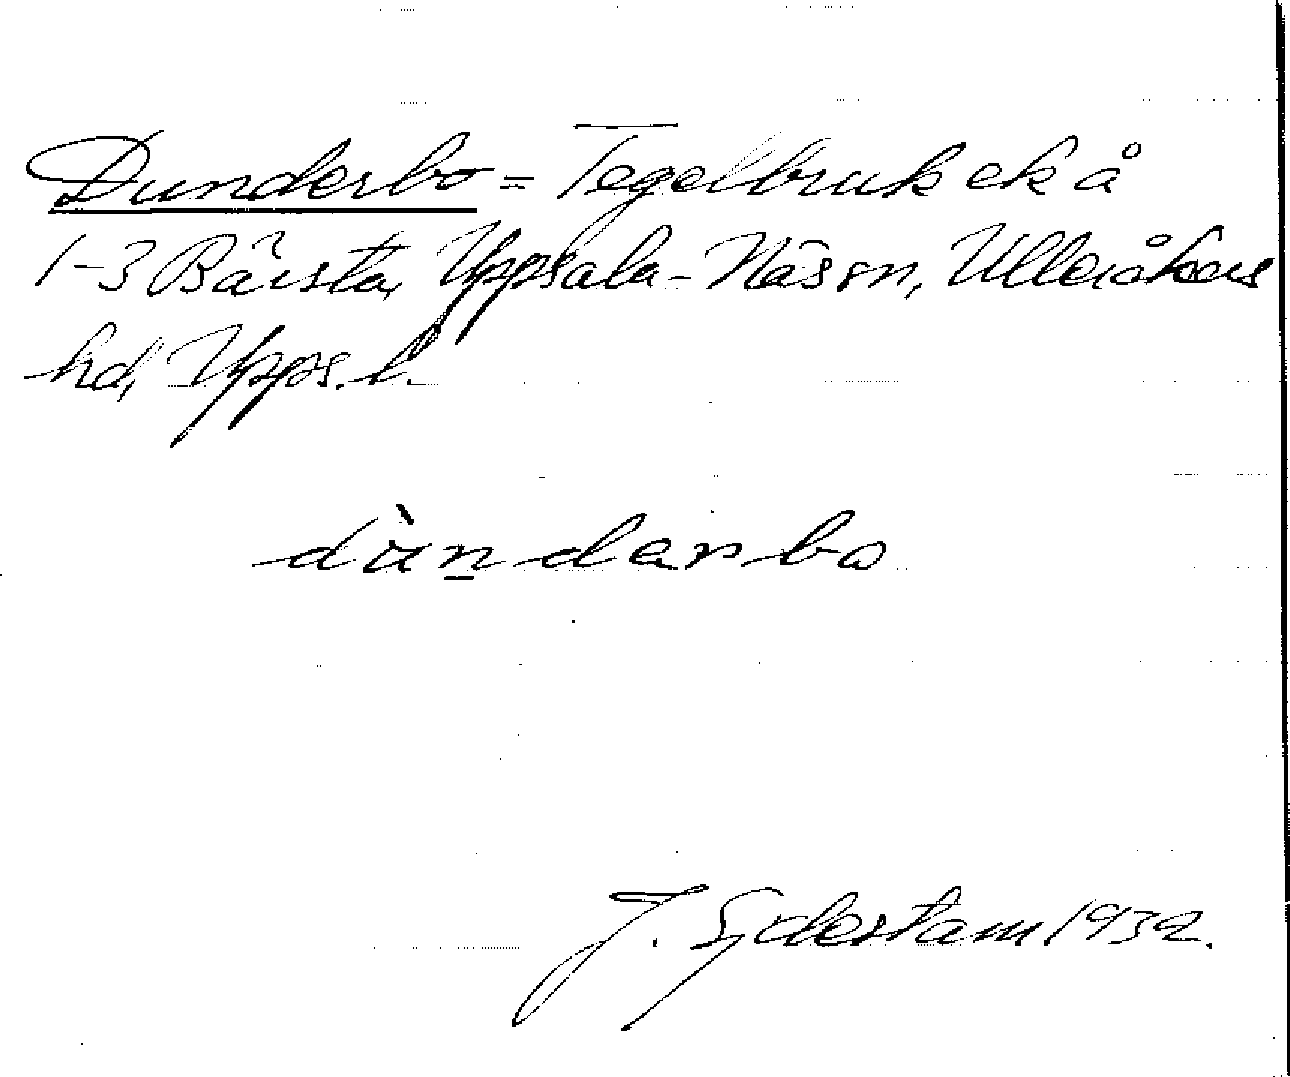 Dunderbo = Tegelbruk ek å
1-3 Bärsta, Uppsala-Näs sn, Ulleråkers
hd, Upps. l.
dùn̲darbo
J. Sydestam 1932.